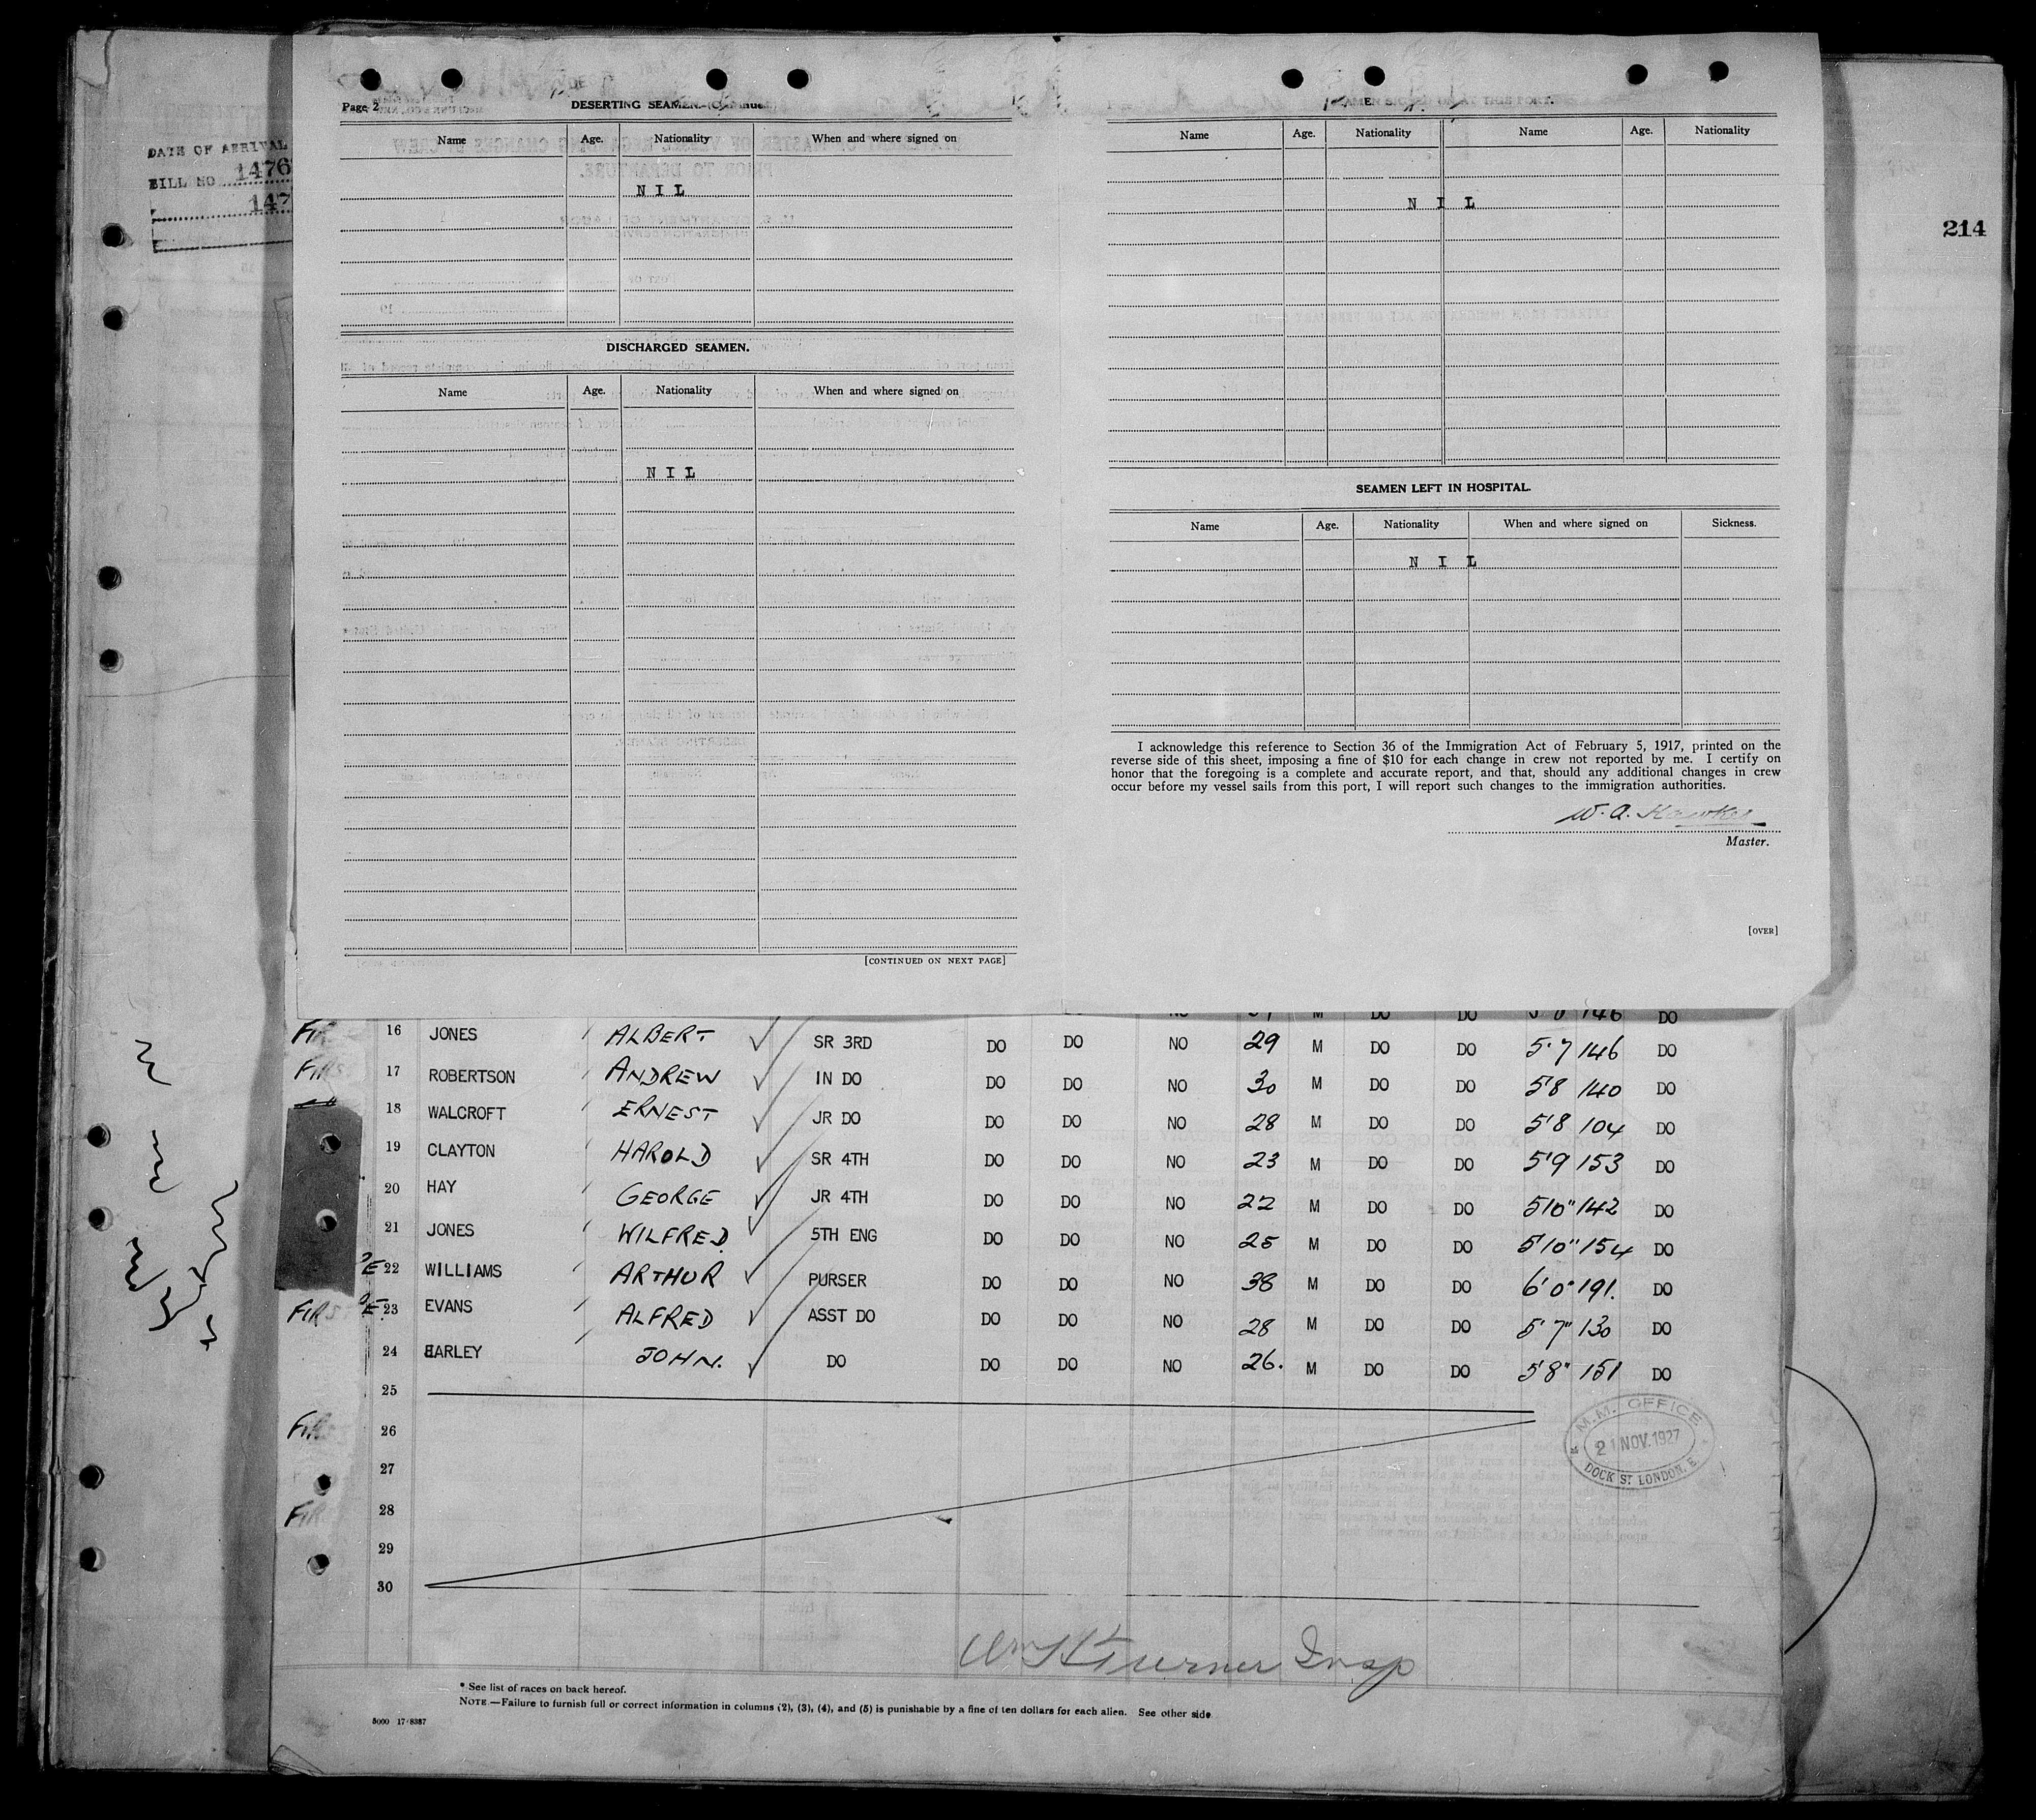 DATE OF ARRIVAL
BILL NO 1476
147
214
Page 2
DESERTING SEAMEN.
Name Age. Nationality When and where signed on
NIL
DISCHARGED SEAMEN.
Name Age. Nationality When and where signed on
NIL
[CONTINUED ON NEXT PAGE]
SEAMEN SIGNED ON AT THIS PORT.
Name Age. Nationality Name Age. Nationality
NIL
SEAMEN LEFT IN HOSPITAL.
Name Age. Nationality When and where signed on Sickness.
NIL
I acknowledge this reference to Section 36 of the Immigration Act of February 5, 1917, printed on the
reverse side of this sheet, imposing a fine of $10 for each change in crew not reported by me. I certify on
honor that the foregoing is a complete and accurate report, and that, should any additional changes in crew
occur before my vessel sails from this port, I will report such changes to the immigration authorities.
W. A. Hawkes
Master.
[OVER]
16 JONES ALBERT SR 3RD DO DO NO 29 M DO DO 5'7 146 DO
17 ROBERTSON ANDREW IN DO DO DO NO 30 M DO DO 5'8 140 DO
18 WALCROFT ERNEST JR DO DO DO NO 28 M DO DO 5'8 104 DO
19 CLAYTON HAROLD SR 4TH DO DO NO 23 M DO DO 5'9 153 DO
20 HAY GEORGE JR 4TH DO DO NO 22 M DO DO 5'10" 142 DO
21 JONES WILFRED. 5TH ENG DO DO NO 25 M DO DO 5'10" 154 DO
22 WILLIAMS ARTHUR PURSER DO DO NO 38 M DO DO 6'0" 191. DO
23 EVANS ALFRED ASST DO DO DO NO 28 M DO DO 5'7" 130 DO
24 EARLEY JOHN. DO DO DO NO 26. M DO DO 5'8" 151 DO
25
26
27
28
29
30
M.M. OFFICE
21 NOV.1927
DOCK ST LONDON. E
Wm H Turner Insp
* See list of races on back hereof.
NOTE.—Failure to furnish full or correct information in columns (2), (3), (4), and (5) is punishable by a fine of ten dollars for each alien. See other side
5000 17/8387